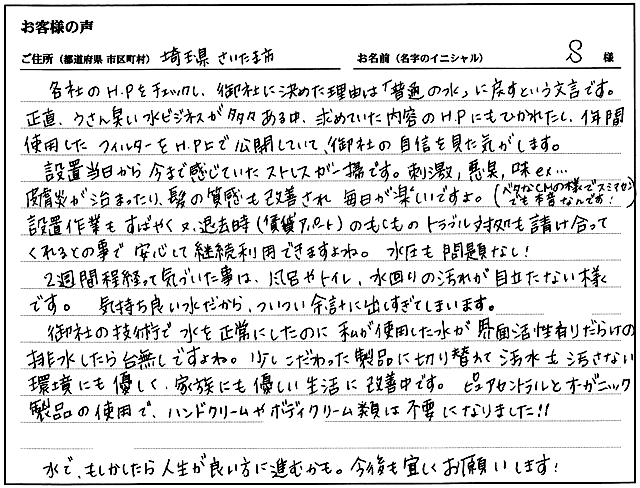 お客様の声
ご住所（都道府県 市区町村） 埼玉県 さいたま市 お名前（名字のイニシャル） S 様
各社のH.Pをチェックし、御社に決めた理由は「普通の水」に戻すという文言です。
正直、うさん臭い水ビジネスが多々ある中、求めていた内容のH.Pにもひかれたし、1年間
使用したフィルターをH.P上で公開していて、御社の自信を見た気がします。
設置当日から今まで感じていたストレスが一掃です。刺激，悪臭，味ex…
皮膚炎が治まったり、髪の質感も改善され 毎日が楽しいですよ。（ベタなCMの様でスミマセン でも本音なんです！）
設置作業もすばやく又、退去時（賃貸アパート）のもしものトラブル対処も請け合って
くれるとの事で 安心して継続利用できますよね。 水圧も問題なし！
2週間程経って気づいた事は、風呂やトイレ、水回りの汚れが目立たない様
です。 気持ち良い水だから、ついつい余計に出しすぎてしまいます。
御社の技術で 水を正常にしたのに 私が使用した水が 界面活性有りだらけの
排水したら台無しですよね。少しこだわった製品に切り替えて 汚水も汚さない
環境にも優しく、家族にも優しい生活に改善中です。 ピュアセントラルとオーガニック
製品の使用で、ハンドクリームやボディクリーム類は不要になりました!!
水で、もしかしたら人生が良い方に進むかも。今後も宜しくお願いします！